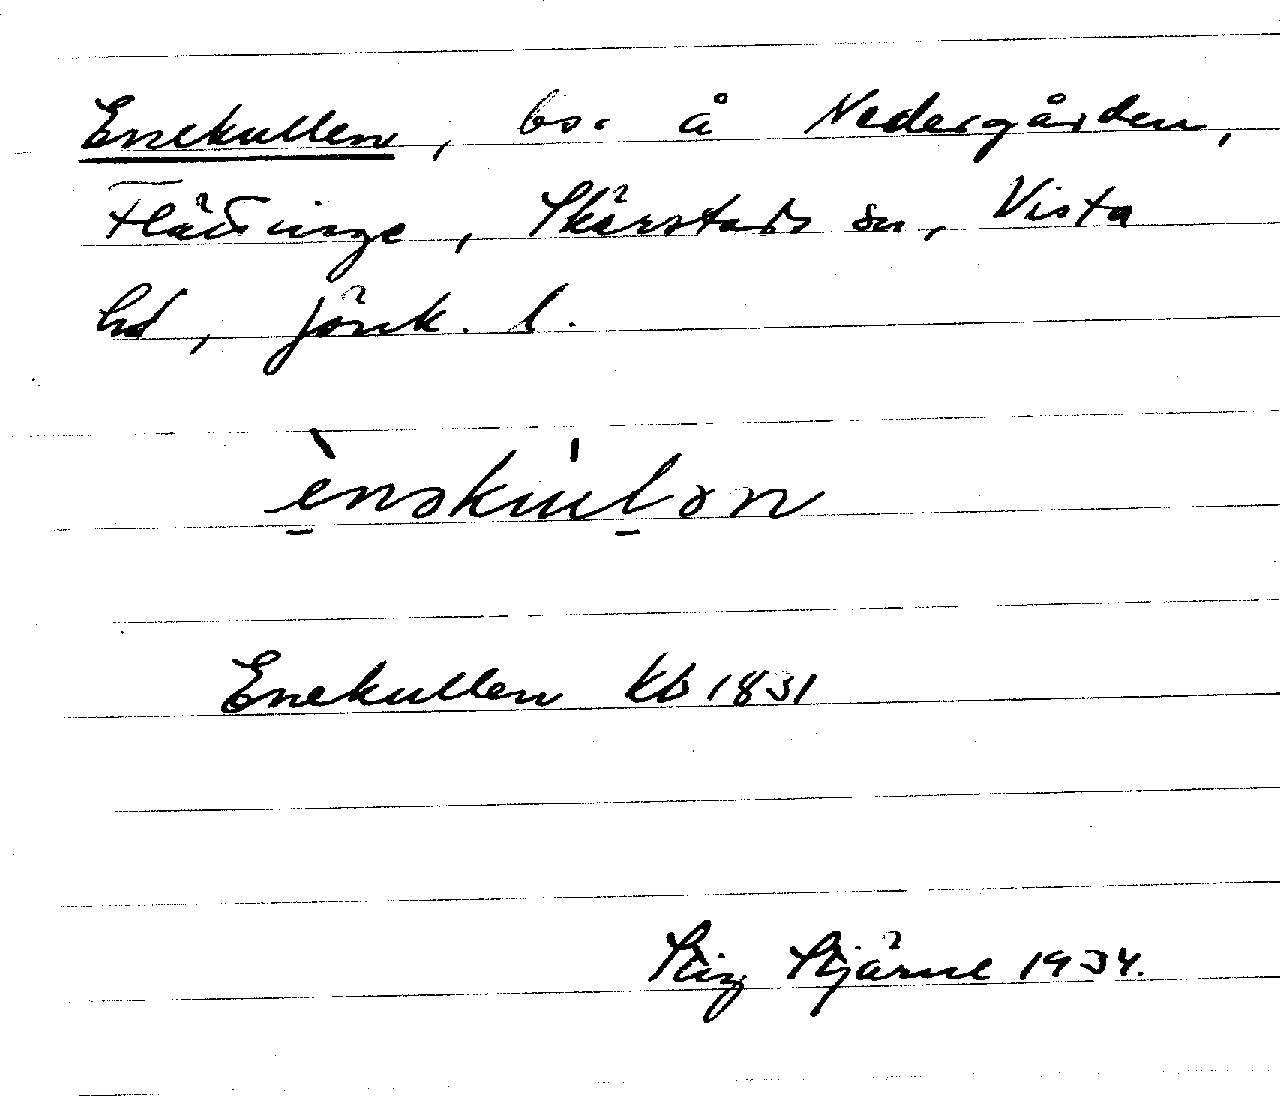 Enekullen, bs. å Nedergården,
Flättinge, Skärstads sn, Vista
hd, Jönk. l.
ènəkùlən
Enekullen kb 1831
Stig Stjärne 1934.